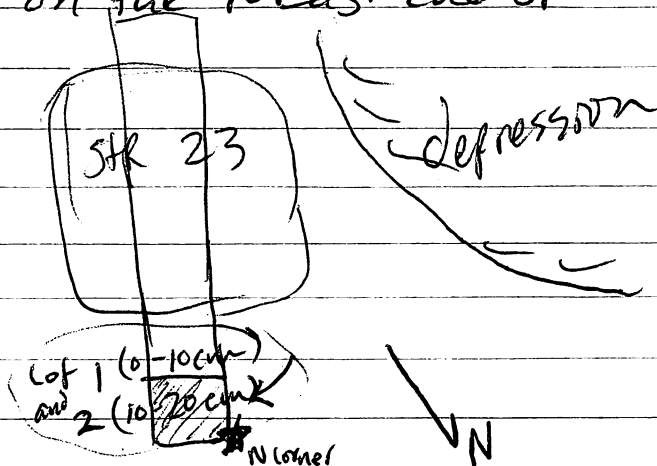 on the
STR 23
depression
Lot 1 (0-10cm)
and 2 (10-20cm)
N corner
N